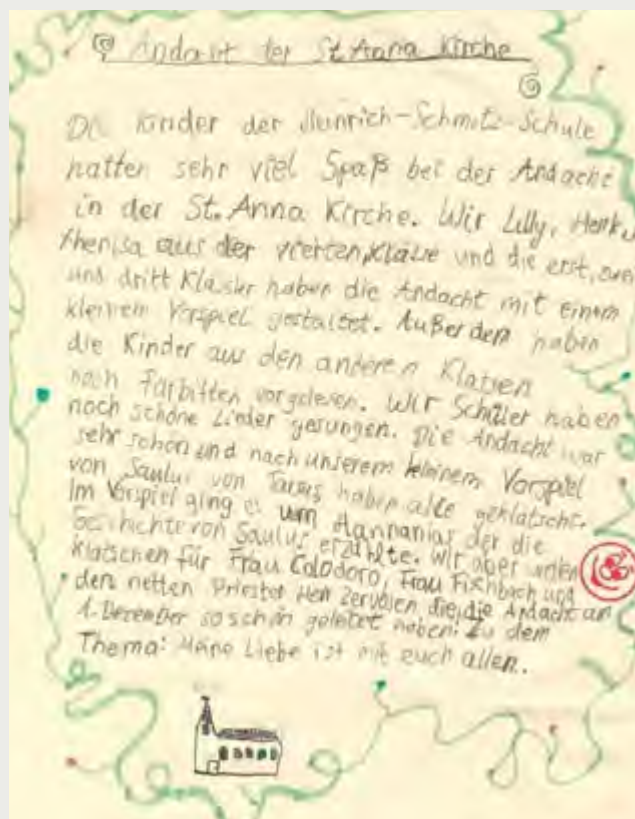 Andacht der St. Anna Kirche
Die Kinder der Heinrich-Schmitz-Schule
hatten sehr viel Spaß bei der Andacht
in der St. Anna Kirche. Wir Lilly,
aus der vierten Klasse und die erst, zwei
und dritt Klässer haben die Andacht mit einem
kleinem Vorspiel gestaltet. Außerdem haben
die Kinder aus den anderen Klassen
noch Fürbitten vorgelesen. Wir Schüler haben
noch schöne Lieder gesungen. Die Andacht war
sehr schön und nach unserem kleinem Vorspiel
von Saulus von Tarsus haben alle geklatscht.
Im Vorspiel ging es um Hannanias der die
Geschichte von Saulus erzählte. Wir aber
klatschen für Frau Colodoro, Frau Fischbach und
den netten Priester Herr die, die Andacht am
1. Dezember so schön geleitet haben. Zu dem
Thema: Meine Liebe ist mit euch allen.